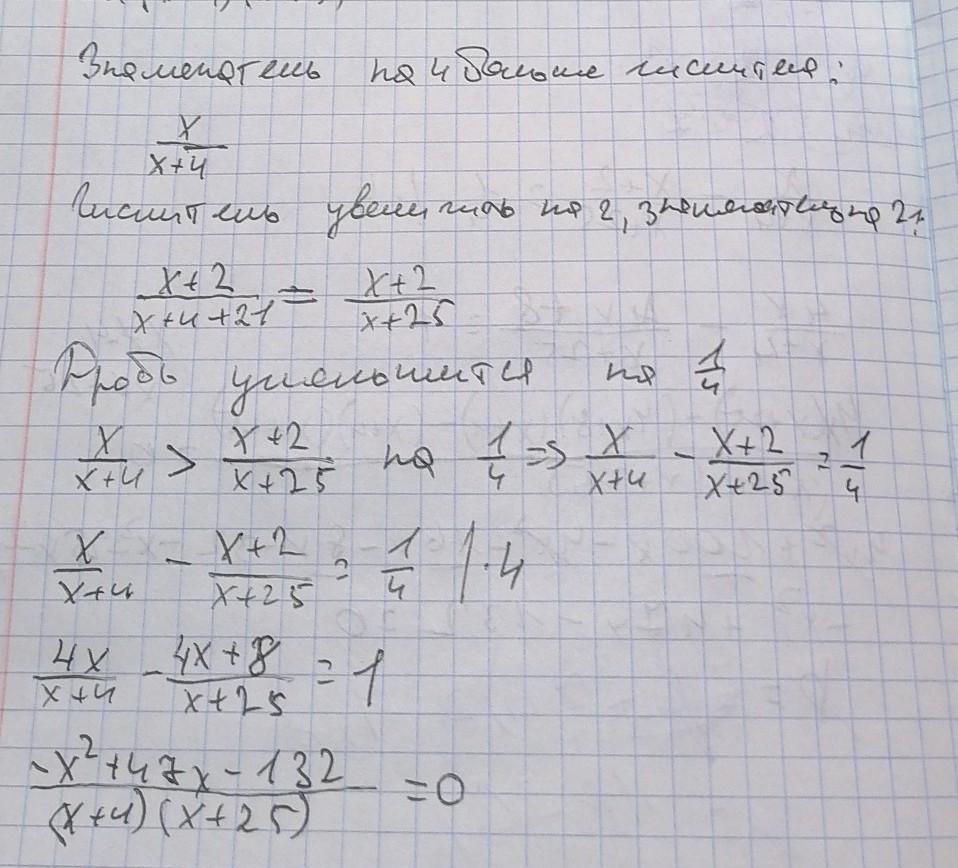 Знаменатель на 4 больше числителя:
x/(x+4)
Числитель увеличить на 2, знаменатель на 21:
(x+2)/(x+4+21) = (x+2)/(x+25)
Дробь уменьшится на 1/4
x/(x+4) > (x+2)/(x+25) на 1/4 => x/(x+4) - (x+2)/(x+25) = 1/4
x/(x+4) - (x+2)/(x+25) = 1/4 | · 4
4x/(x+4) - (4x+8)/(x+25) = 1
(-x²+47x-132)/((x+4)(x+25)) = 0